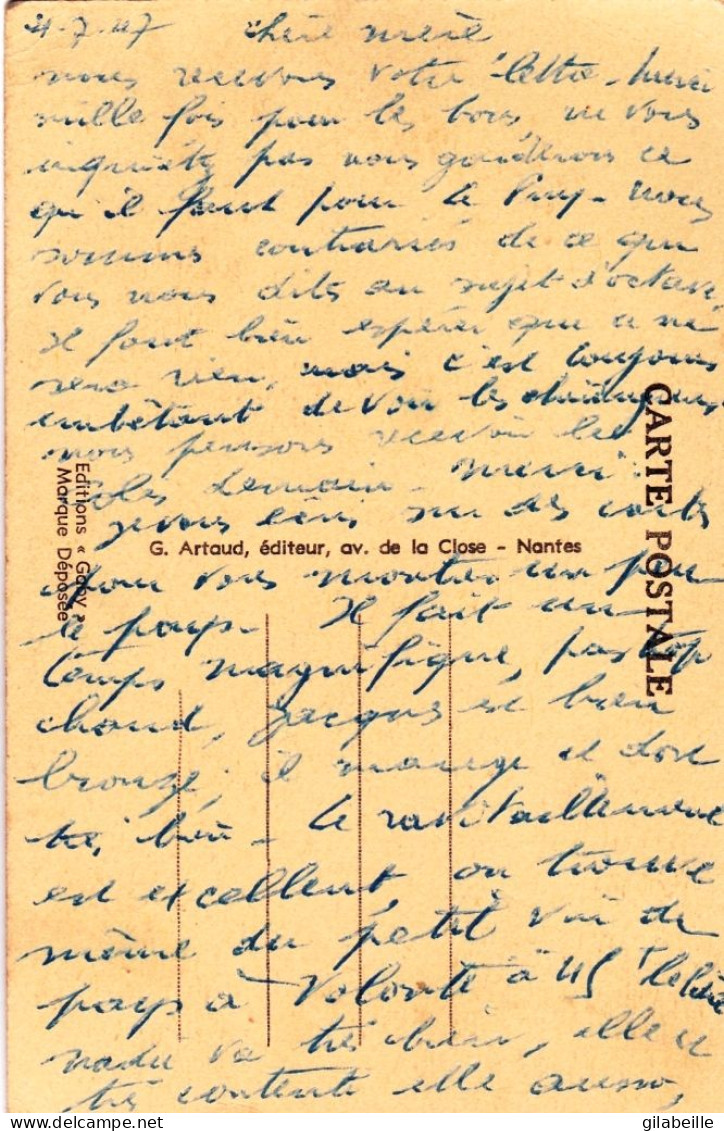 4-7-47 chère mère
nous recevons votre lettre - merci
mille fois pour les bons, ne vous
inquiétez pas nous garderons ce
qu'il faut pour le Puy - Nous
sommes contrariés de ce que
vous nous dits au sujet d'octave,
Il faut bien espérer que ce ne
sera rien, mais c'est toujours
embêtant de voir les
nous pensons recevoir les
colis demain - merci.
je vous écris sur des cartes
pour vous montrer un peu
le pays. Il fait un
temps magnifique, pas trop
chaud, Jacques est bien
bronzé, il mange et dort
très bien - le ravitaillement
est excellent, on trouve
même du petit vin de
pays à volonté à 45 F le litre
va très bien, elle est
très contente elle aussi,
CARTE POSTALE
G. Artaud, éditeur, av. de la Close - Nantes
Editions « Gaby »
Marque Déposée
gilabeille